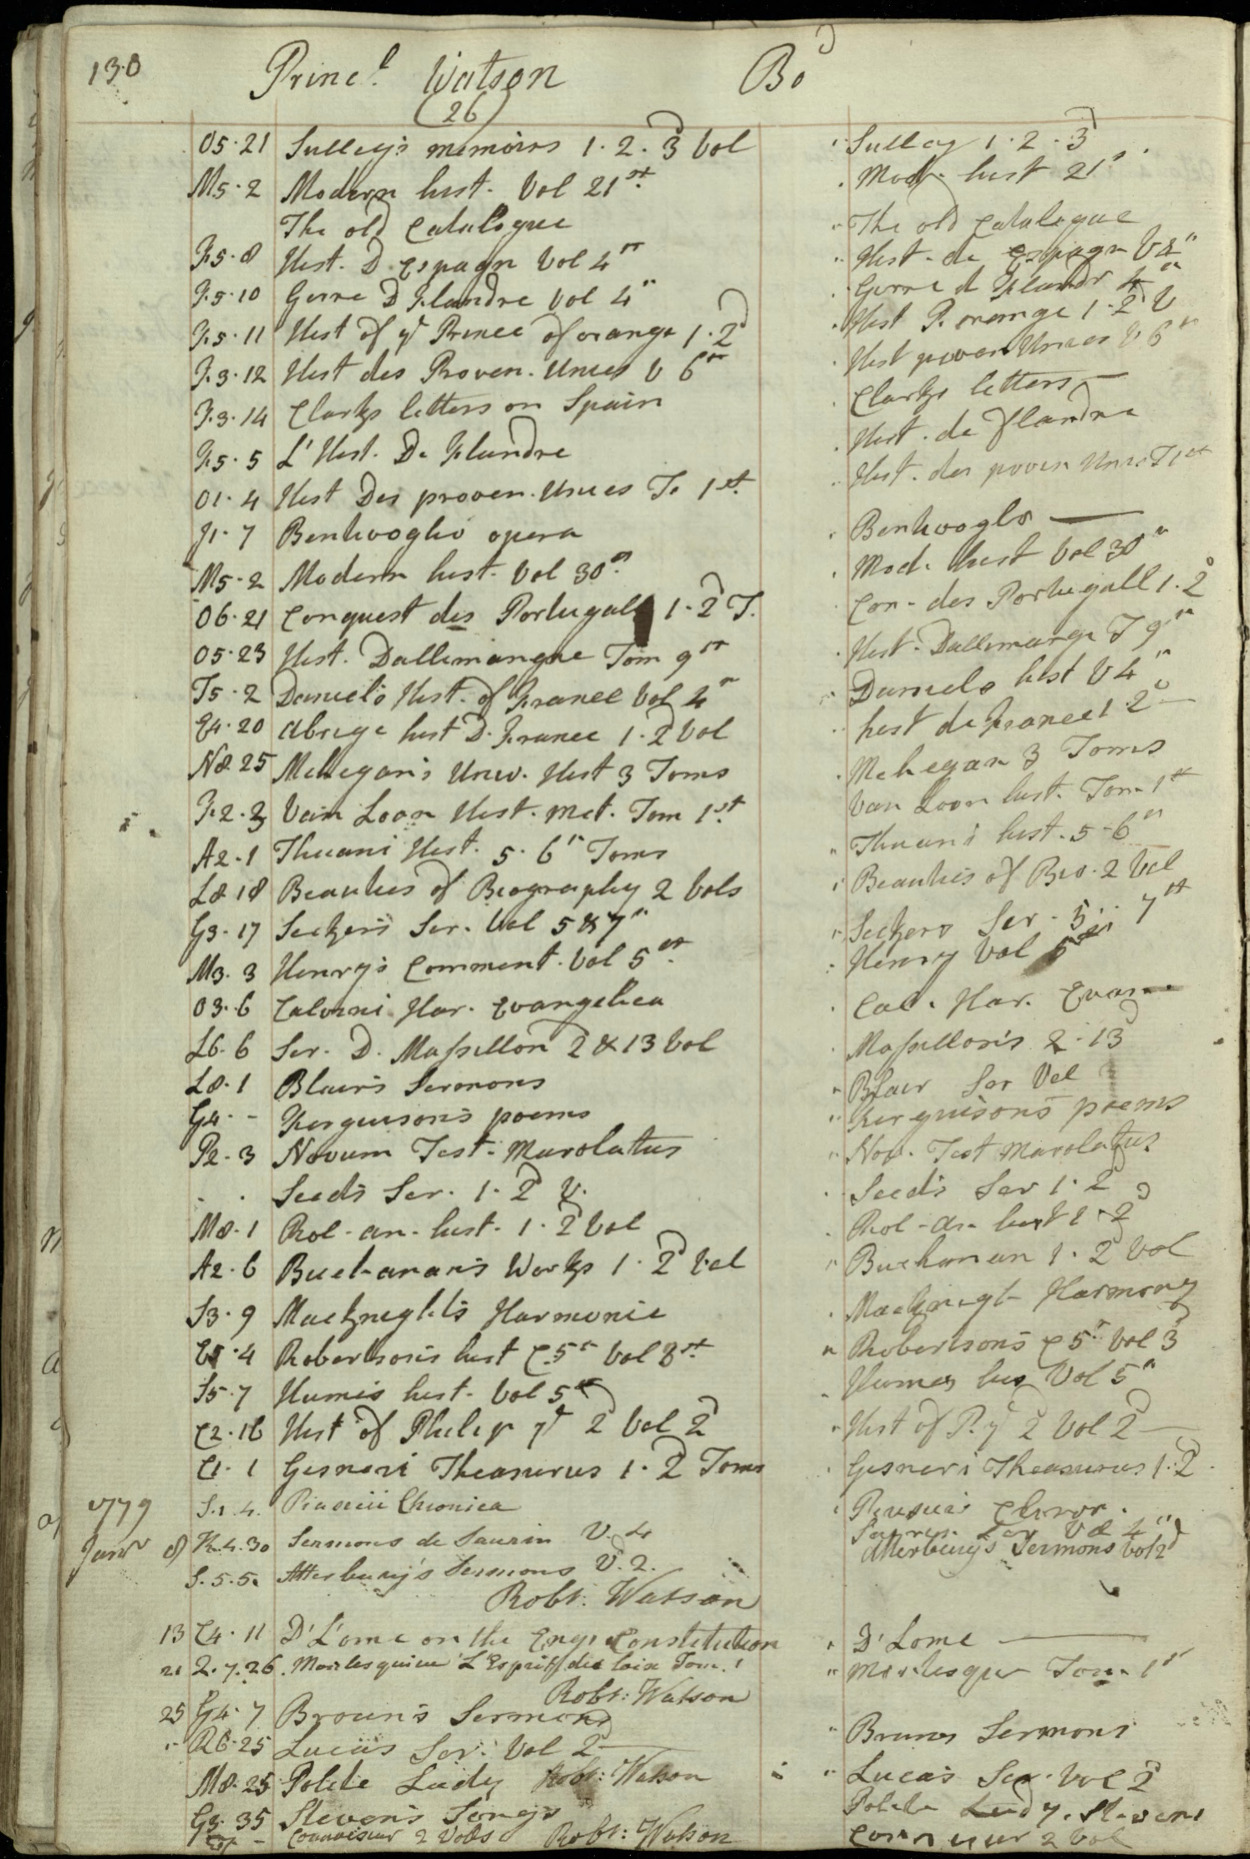 130 Princl. Watson Bod
(26)
O5·21 Sulley's memoirs 1·2·3d Vol Sulley 1·2·3d
M5·2 Modern hist. Vol 21st Mod. hist 21st
The old Catalogue The old Catalogue
F5·8 Hist. D Espagn Vol 4th Hist. de Espagn V 4th
F5·10 Gerre D Flandre Vol 4th Gerre d Flandr 4th
F5·11 Hist of ye Prince of orange 1·2d Hist P. orange 1·2d V
F3·12 Hist des Proven. Unies V 6th Hist proven Unies V 6th
F3·14 Clarks letters on Spain Clarks letters
F5·5 L' Hist. De Flandre Hist. de flandre
O1·4 Hist Des proven. Unies To 1st Hist. des proven Unies T 1st
J1·7 Bentivoglio opera Bentivoglo
M5·2 Modern hist. Vol 30th Mod. hist Vol 30th
O6·21 Conquest des Portugall 1·2d T. Con. des Portugall 1·2d
O5·23 Hist. Dallimangne Tom 9th Hist. Dallimange T 9th
T5·2 Daniel's Hist. of France Vol 4th Daniels hist V 4th
E4·20 Abrege hist D. France 1·2d Vol hist de France 1·2d
N8·25 Mehegan's Univ. Hist 3 Toms Mehegan 3 Toms
F2·3 Van Loon Hist. Met. Tom 1st Van Loon hist. Tom 1st
A2·1 Thuani Hist. 5·6th Toms Thuani hist. 5·6th
L8·18 Beauties of Biography 2 Vols Beauties of Bio. 2 Vol
G3·17 Seckers Ser. Vol 5 & 7th Seckers Ser. 5·7th
M3·3 Henry's Comment. Vol 5th Henry Vol 5th
O3·6 Calvini Har. Evangelica Cal. Har. Evan
L6·6 Ser. D. Massillon 2 & 13 Vol Massillon's 2·13
L8·1 Blair's Sermons Blair Ser Vol
G4·- Ferguson's poems Ferguison's poems
P2·3 Novum Test. Marolatus Nov. Test Marolatus
Seed's Ser. 1·2d V. Seed's Ser 1·2d
M8·1 Rol. an. hist. 1·2d Vol Rol. an. hist 1·2d
A2·6 Buchanan's Works 1·2d Vol Buchanan 1·2d Vol
S3·9 Macknight's Harmonie Macknight Harmony
E5·4 Robertson's hist C.5th Vol 3rd Robertson's C 5th Vol 3d
S5·7 Hume's hist. Vol 5th Humes his Vol 5th
C2·16 Hist of Philip ye 2d Vol 2d Hist of P. ye 2d Vol 2d
C1·1 Gesneri Theasurus 1·2d Toms Gesneri Theasurus 1·2d
1779 S.1.4. Chronica Chron.
Janr 8 K.4.30 Sermons de Saurin V.4 Ser Vol 4th
S.5.5. Atterbury's Sermons V.2. Atterbury's Sermons Vol 2d
Robt. Watson
13 C4·11 D'Lome on the Engs. Constitution D'Lome
21 2.7.26. Montesquieu L'Esprit des loix Tom. 1 Montesqu Tom. 1st
Robt: Watson
25 G4·7 Broun's Sermons Bruns Sermons
R6·25 Lucas's Ser. Vol 2d Lucas Ser. Vol 2d
M8·25 Polite Lady Robt: Watson Polite Lady. Stevens
G3·35 Steven's Songs
Connoiseur 2 Vols Robt: Watson Connoiseur 2 Vol